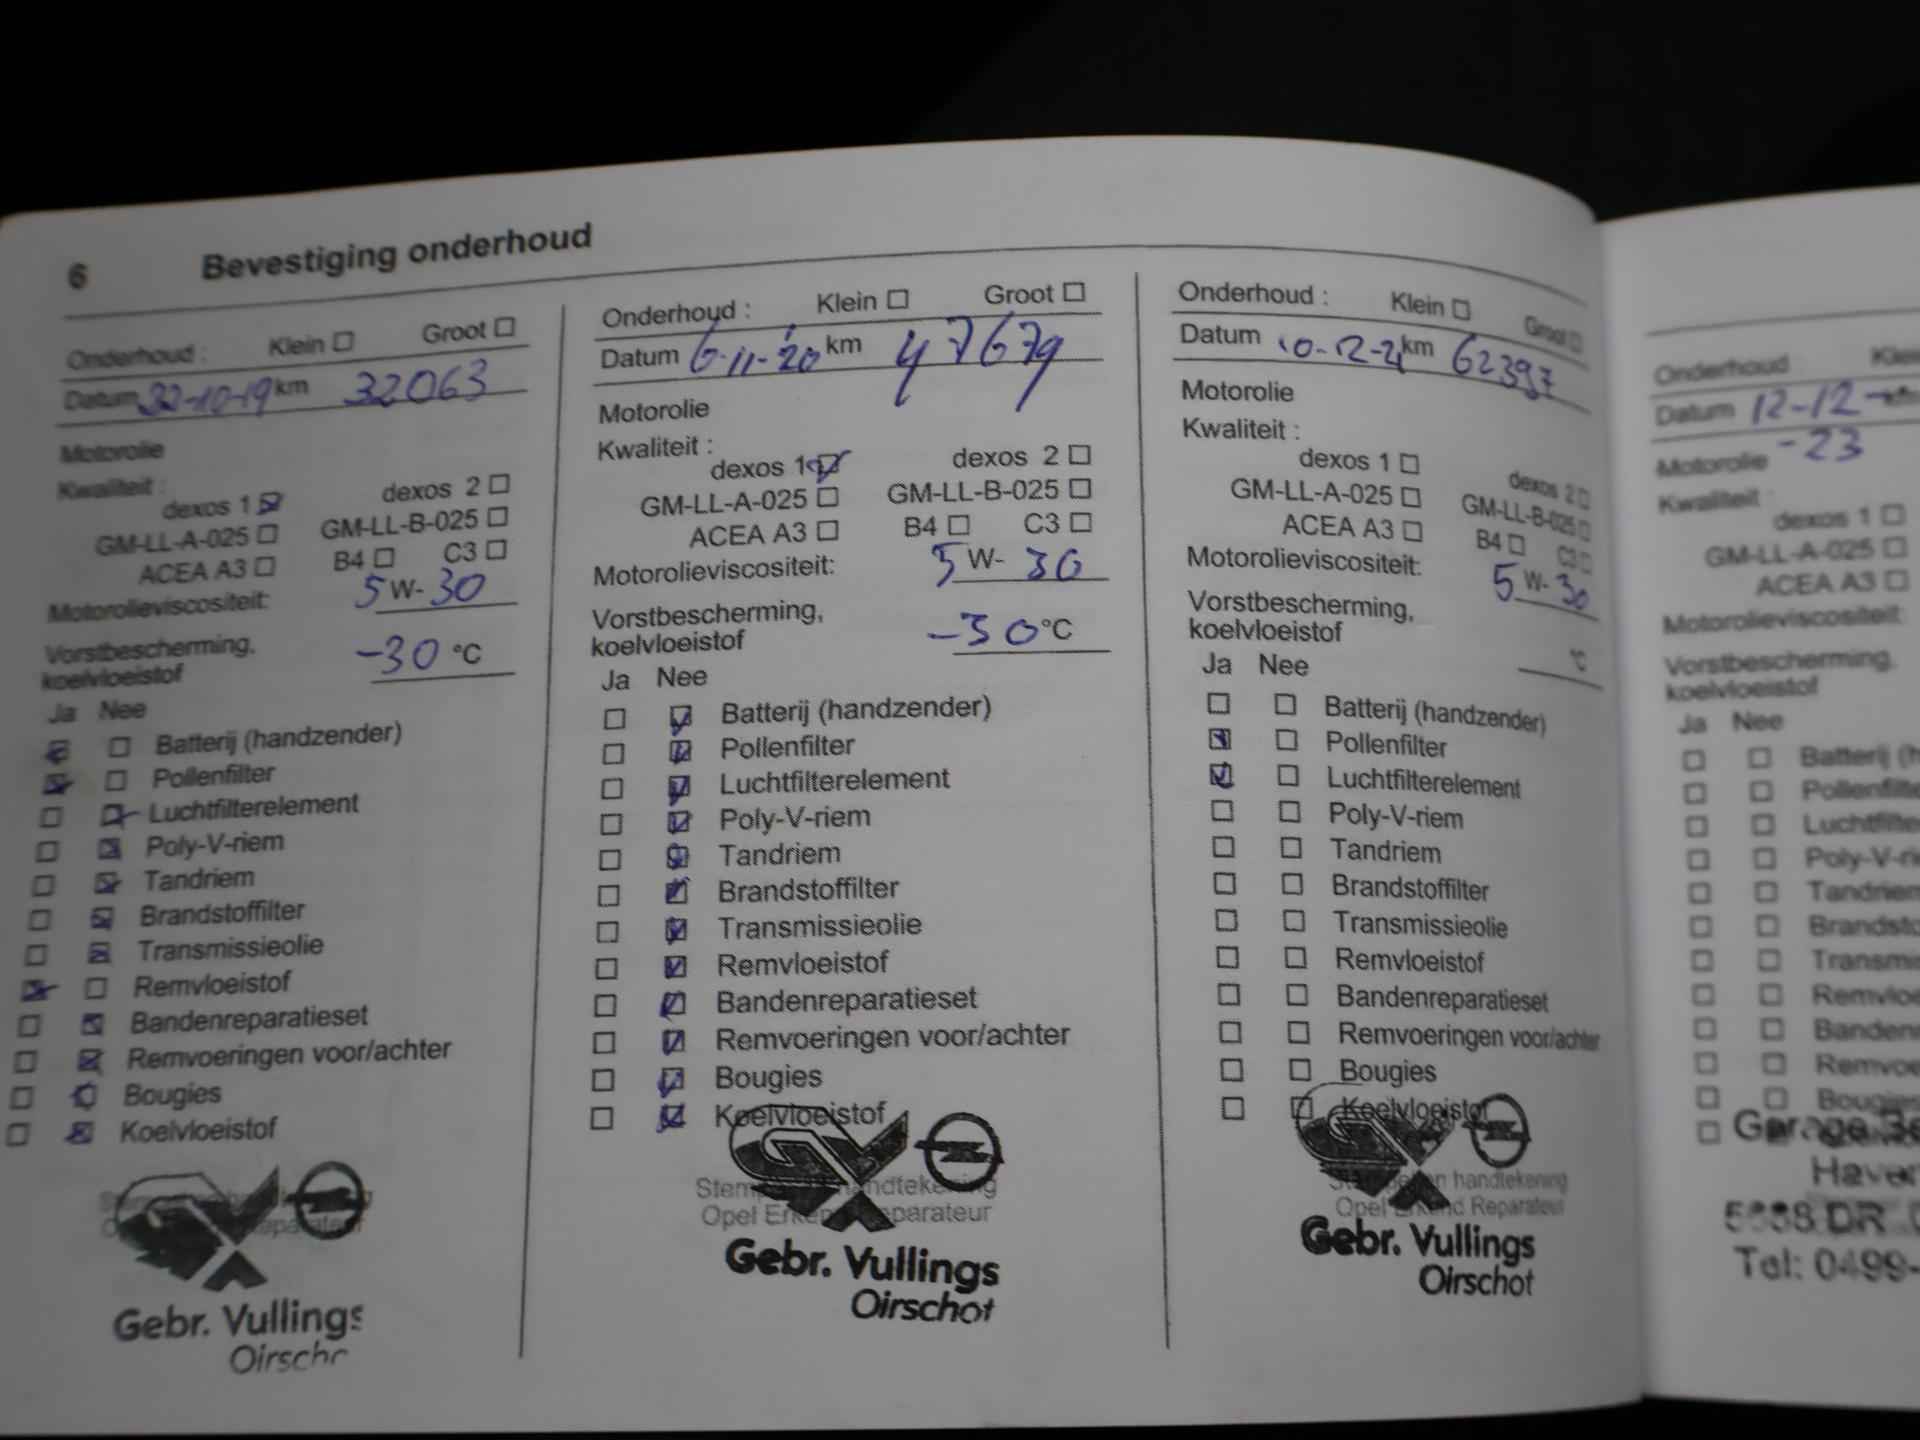 6 Bevestiging onderhoud
Onderhoud : Klein Groot
Datum 22-10-19 km 32063
Motorolie
Kwaliteit :
dexos 1 dexos 2
GM-LL-A-025 GM-LL-B-025
ACEA A3 B4 C3
Motorolieviscositeit: 5 W- 30
Vorstbescherming,
koelvloeistof -30 °C
Ja Nee
Batterij (handzender)
Pollenfilter
Luchtfilterelement
Poly-V-riem
Tandriem
Brandstoffilter
Transmissieolie
Remvloeistof
Bandenreparatieset
Remvoeringen voor/achter
Bougies
Koelvloeistof
Gebr. Vullings
Onderhoud : Klein Groot
Datum 6-11-'20 km 47679
Motorolie
Kwaliteit :
dexos 1 dexos 2
GM-LL-A-025 GM-LL-B-025
ACEA A3 B4 C3
Motorolieviscositeit: 5 W- 30
Vorstbescherming,
koelvloeistof -30 °C
Ja Nee
Batterij (handzender)
Pollenfilter
Luchtfilterelement
Poly-V-riem
Tandriem
Brandstoffilter
Transmissieolie
Remvloeistof
Bandenreparatieset
Remvoeringen voor/achter
Bougies
Koelvloeistof
Stempel en handtekening
Opel Erkend Reparateur
Gebr. Vullings
Oirschot
Onderhoud : Klein Groot
Datum 10-12-21 km 62397
Motorolie
Kwaliteit :
dexos 1 dexos 2
GM-LL-A-025 GM-LL-B-025
ACEA A3 B4 C3
Motorolieviscositeit: 5 W- 30
Vorstbescherming,
koelvloeistof °C
Ja Nee
Batterij (handzender)
Pollenfilter
Luchtfilterelement
Poly-V-riem
Tandriem
Brandstoffilter
Transmissieolie
Remvloeistof
Bandenreparatieset
Remvoeringen voor/achter
Bougies
Koelvloeistof
Stempel en handtekening
Opel Erkend Reparateur
Gebr. Vullings
Oirschot
Onderhoud :
Datum 12-12-
-23
Motorolie
Kwaliteit :
dexos 1
GM-LL-A-025
ACEA A3
Motorolieviscositeit:
Vorstbescherming,
koelvloeistof
Ja Nee
Batterij
Tandriem
Bougies
Garage
Tel: 0499-